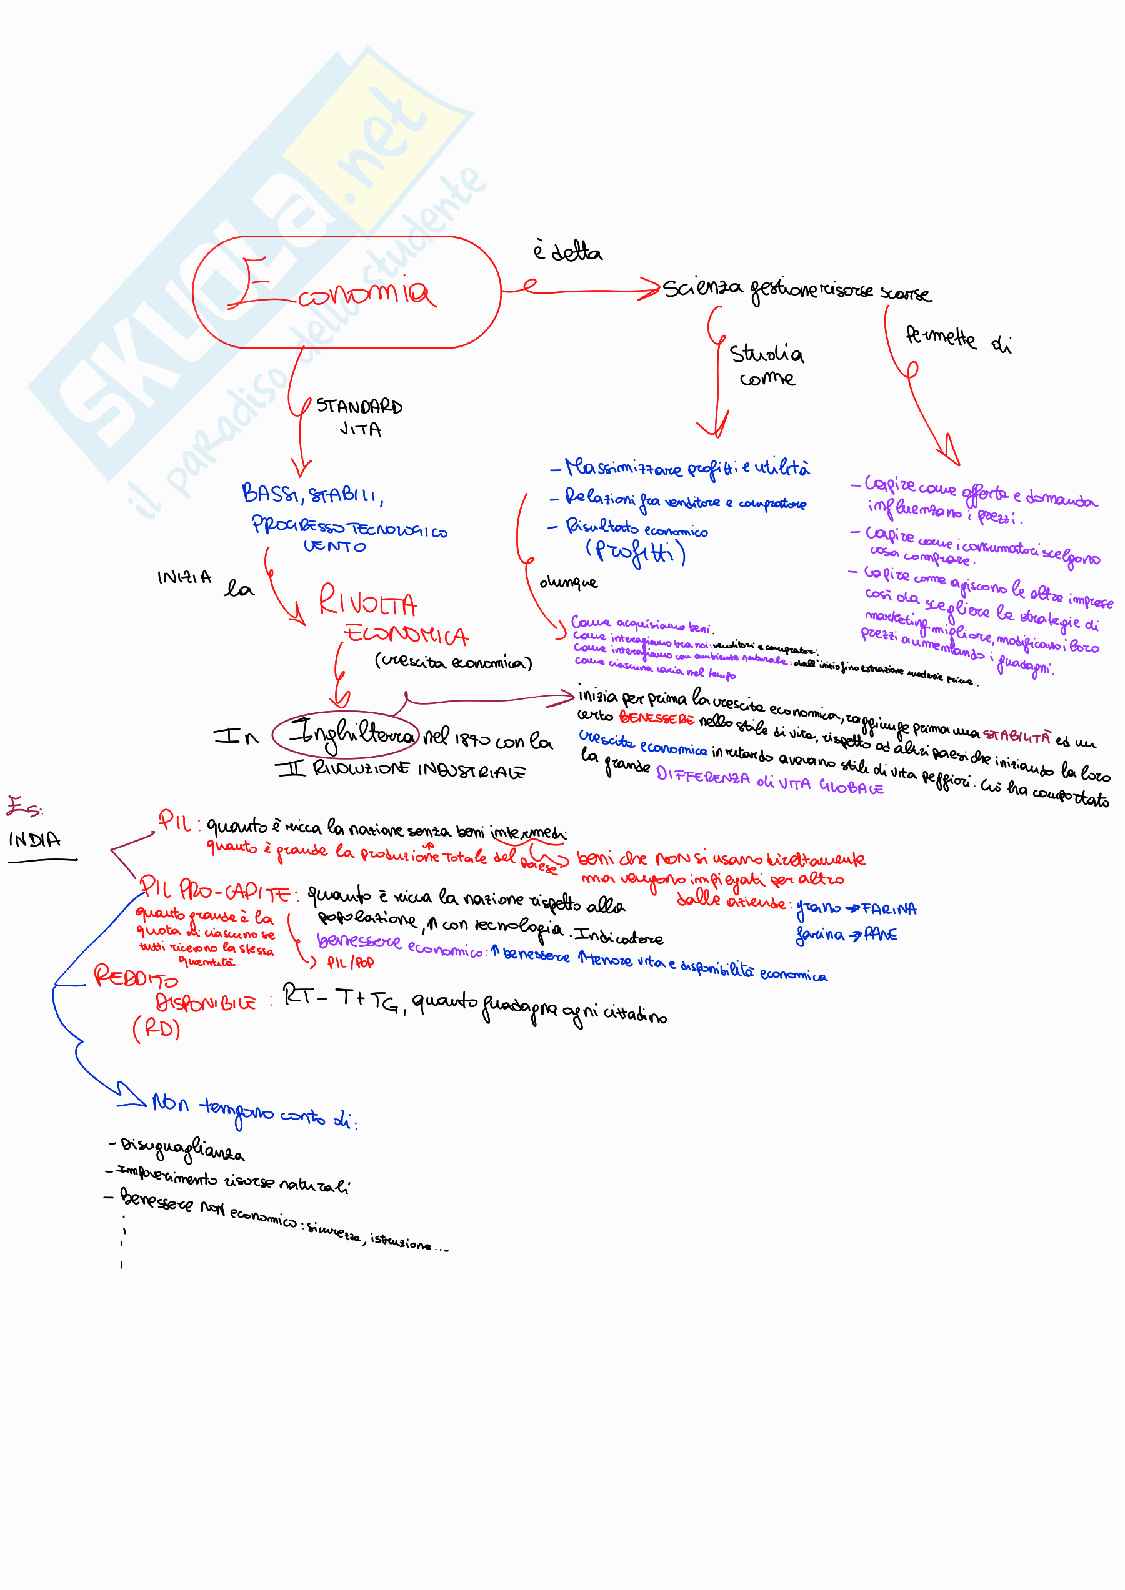 SKUOLA.net
il paradiso dello studente
Economia
è detta
scienza gestione risorse scarse
Studia
come
Permette di
STANDARD
VITA
BASSI, STABILI,
PROGRESSO TECNOLOGICO
LENTO
- Massimizzare profitti e utilità
- Relazioni fra venditore e compratore
- Risultato economico
(Profitti)
dunque
Come acquisiamo beni.
Come interagiamo tra noi: venditori e compratore.
Come interagiamo con ambiente naturale: dall'inizio fino estrazione materie prime.
Come ciascuna varia nel tempo
- Capire come offerta e domanda
influenzano i prezzi.
- Capire come i consumatori scelgono
cosa comprare.
- Capire come agiscono le altre imprese
così da scegliere le strategie di
marketing migliore, modificano i loro
prezzi aumentando i guadagni.
INIZIA
la
RIVOLTA
ECONOMICA
(crescita economica)
In Inghilterra nel 1870 con la
II RIVOLUZIONE INDUSTRIALE
inizia per prima la crescita economica, raggiunge prima una STABILITÀ ed un
certo BENESSERE nello stile di vita, rispetto ad altri paesi che iniziando la loro
crescita economica in ritardo avevano stile di vita peggiori. Ciò ha comportato
la grande DIFFERENZA di VITA GLOBALE
Es:
INDIA
PIL: quanto è ricca la nazione senza beni intermedi
quanto è grande la produzione totale del paese
beni che NON si usano direttamente
ma vengono impiegati per altro
dalle aziende: grano → FARINA
farina → PANE
PIL PRO-CAPITE: quanto è ricca la nazione rispetto alla
popolazione, ↑ con tecnologia. Indicatore
benessere economico: ↑ benessere ↑ tenore vita e disponibilità economica
quanto grande è la
quota di ciascuno se
tutti ricevono la stessa
quantità
PIL/POP
REDDITO
DISPONIBILE: RT - T + TG, quanto guadagna ogni cittadino
(RD)
Non tengono conto di:
- Disuguaglianza
- Impoverimento risorse naturali
- Benessere non economico: sicurezza, istruzione...